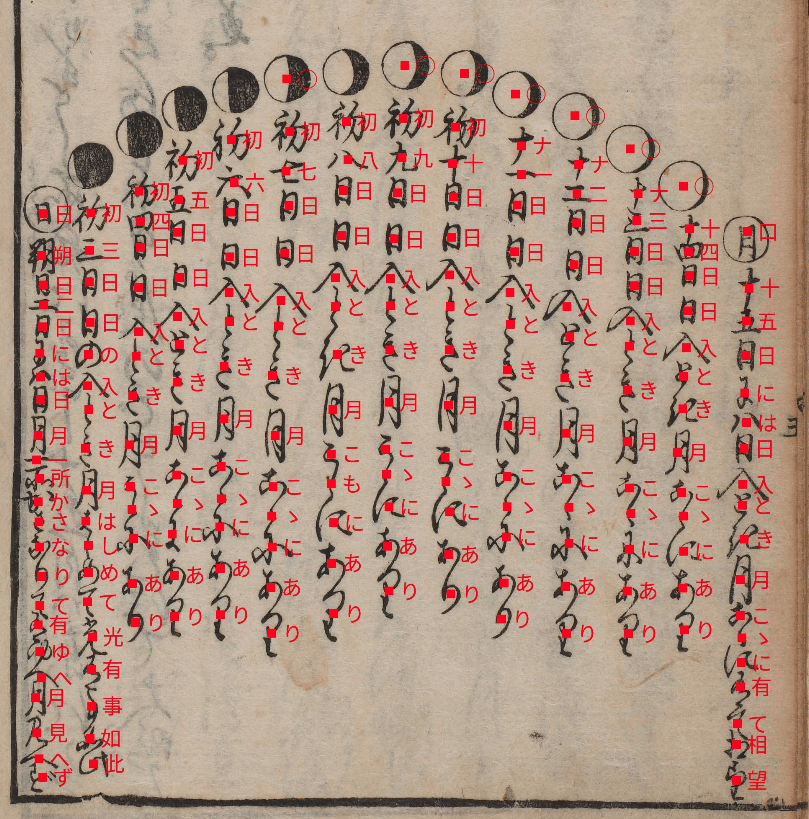 月十五日には日入とき月こゝに有て相望
十四日日入とき月こゝにあり
十三日日入とき月こゝにあり
十二日日入とき月こゝにあり
十一日日入とき月こゝにあり
初十日日入とき月こゝにあり
初九日日入とき月こゝにあり
初八日日入とき月こゝにあり
初七日日入とき月こゝにあり
初六日日入とき月こゝにあり
初五日日入とき月こゝにあり
初四日日入とき月こゝにあり
初三日日の入とき月はしめて光有事如此
日朔日二日には日月一所かさなりて有ゆへ月見へず